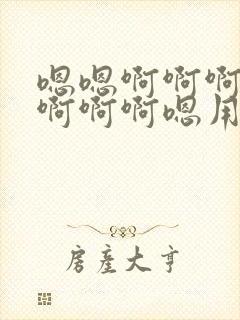 嗯嗯啊啊啊
啊啊啊嗯用
房产大亨